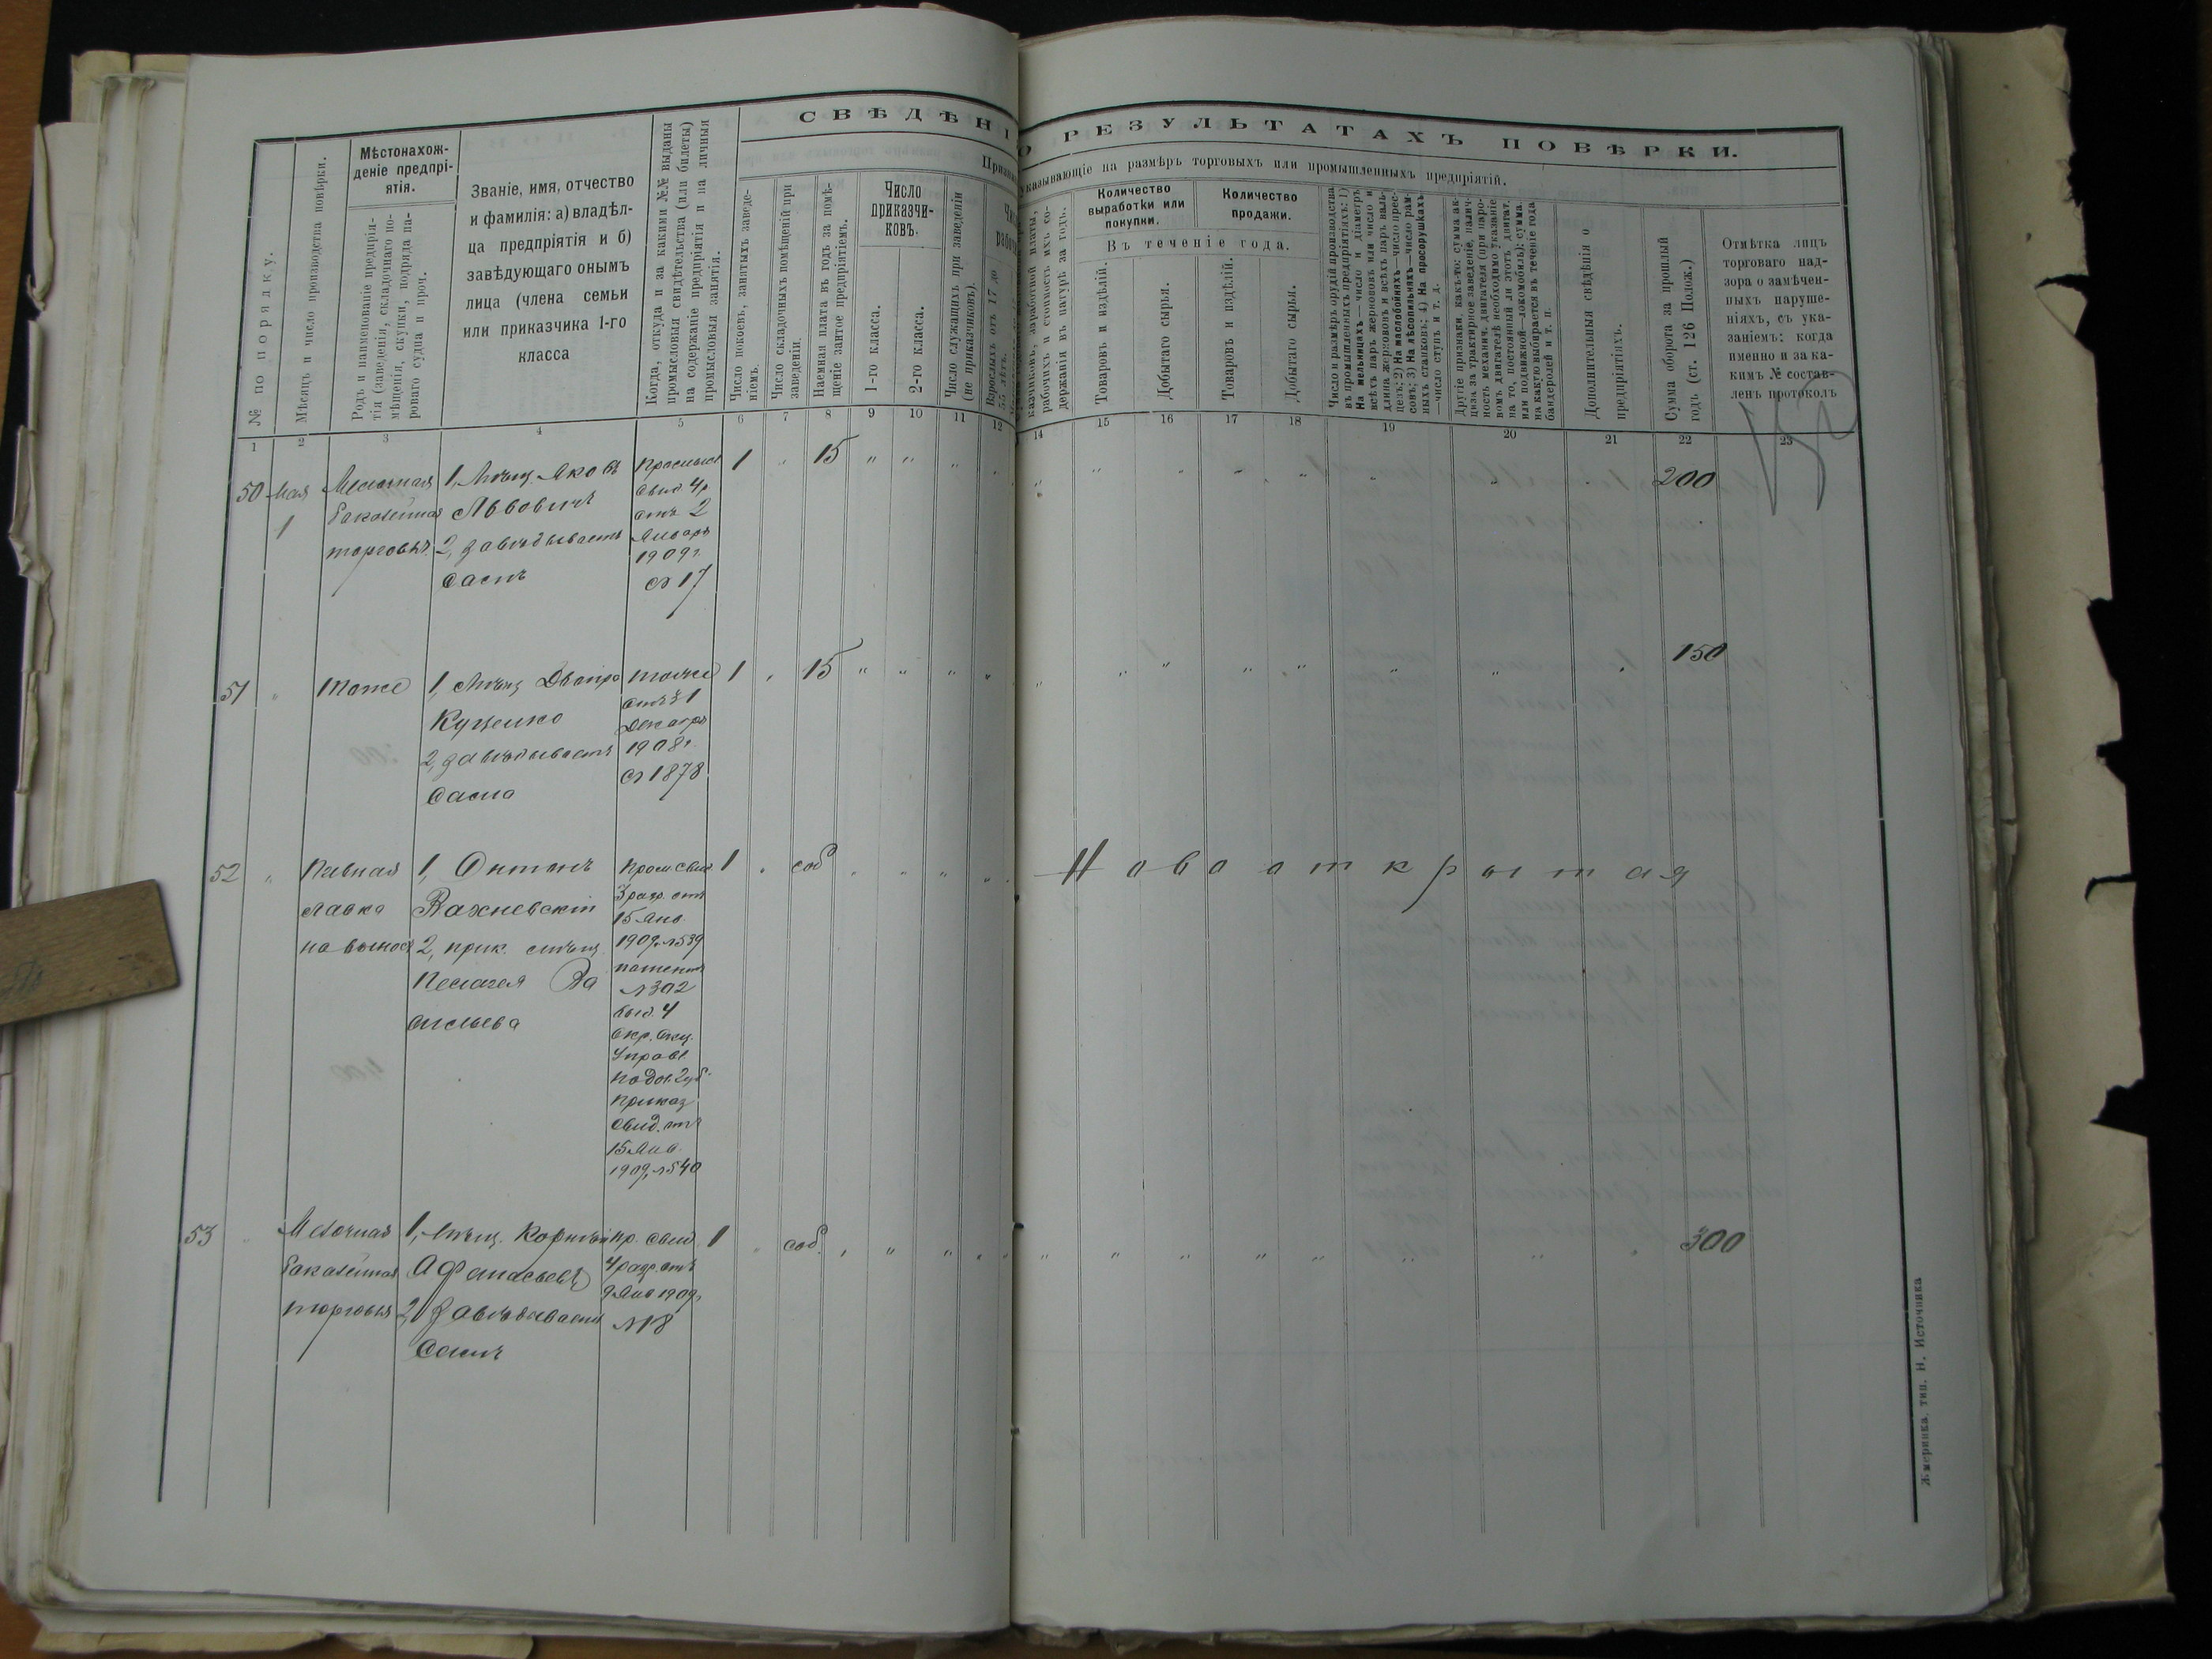 СВѢДѢНІ
О РЕЗУЛЬТАТАХЪ ПОВѢРКИ.
Призна
указывающіе на размѣръ торговыхъ или промышленныхъ предпріятій.
№ по порядку.
Мѣсяцъ и число производства повѣрки.
Мѣстонахож-
деніе предпрі-
ятія.
Родъ и наименованіе предпрія-
тія (заведенія, складочнаго по-
мѣщенія, скупки, подряда па-
роваго судна и проч.
Званіе, имя, отчество
и фамилія: а) владѣл-
ца предпріятія и б)
завѣдующаго онымъ
лица (члена семьи
или приказчика 1-го
класса
Когда, откуда и за какими №№ выданы
промысловыя свидѣтельства (или билеты)
на содержаніе предпріятія и на личныя
промысловыя занятія.
Число покоевъ, занятыхъ заведе-
ніемъ.
Число складочныхъ помѣщеній при
заведеніи.
Наемная плата въ годъ за помѣ-
щеніе занятое предпріятіемъ.
Число
приказчи-
ковъ.
1-го класса.
2-го класса.
Число служащихъ при заведеніи
(не приказчиковъ).
Взрослыхъ отъ 17 до
55 лѣтъ.
рабочихъ и стоимость ихъ со-
держанія въ натурѣ за годъ.
Количество
выработки или
покупки.
Количество
продажи.
Въ теченіе года.
Товаровъ и издѣлій.
Добытаго сырья.
Товаровъ и издѣлій.
Добытаго сырья.
Число и размѣръ орудій производства
въ промышленныхъ предпріятіяхъ: 1)
На мельницахъ—число и діаметръ
всѣхъ паръ жернововъ или число и
длина жернововъ и всѣхъ паръ валь-
цевъ; 2) На маслобойняхъ—число прес-
совъ; 3) На лѣсопильняхъ—число рам-
ныхъ станковъ; 4) На просорушкахъ
—число ступъ и т. д.
Другіе признаки, какъ-то: сумма ак-
циза за трактирное заведеніе, налич-
ность механич. двигателя (при паро-
вомъ двигателѣ необходимо указаніе
на то, постоянный ли этотъ двигат.
или подвижной—локомобиль); сумма,
на какую выбирается въ теченіе года
бандеролей и т. п.
Дополнительныя свѣдѣнія о
предпріятіяхъ.
Сумма оборота за прошлый
годъ (ст. 126 Полож.)
Отмѣтка лицъ
торговаго над-
зора о замѣчен-
ныхъ наруше-
ніяхъ, съ ука-
заніемъ: когда
именно и за ка-
кимъ № состав-
ленъ протоколъ
1 2 3 4 5 6 7 8 9 10 11 12 14 15 16 17 18 19 20 21 22 23
50 Мая Мелочная 1, Мѣщ. Яковъ Промысл 1 " 15 " " " " " " " " " " " " 200
1 бакалейная Львовичъ свид 4 р
торговля 2, завѣдываетъ отъ 2
Января
1909 г.
самъ № 17
51 " Тоже 1, Мѣщ Дмитро тоже 1 " 15 " " " " " " " " " " " " 150
Куценко отъ 31
Декабря
2, завѣдываетъ 1908 г.
сама № 1878
52 " Пивная 1, Антонъ Пром свид 1 " соб " " " " Ново открытая
лавка Вахневскій 3 разр. отъ
15 Янв.
на выносъ 2, прик. мѣщ. 1909 г. № 539
Пелагея Ва патент
№ 302
сильева выд. 4
окр. акц.
Управл.
Подол. Губ.
приказ
свид. отъ
15 Янв.
1909 г. № 540
53 " Мелочная 1, Мѣщ. Корнѣй пр. свид. 1 " соб. " " " " " " " " " " " " 300
бакалейная Афанасьевъ 4 разр. отъ
торговля 2, завѣдываетъ 9 Янв 1909 г.
самъ № 18
Жмеринка, тип. Н. Источника